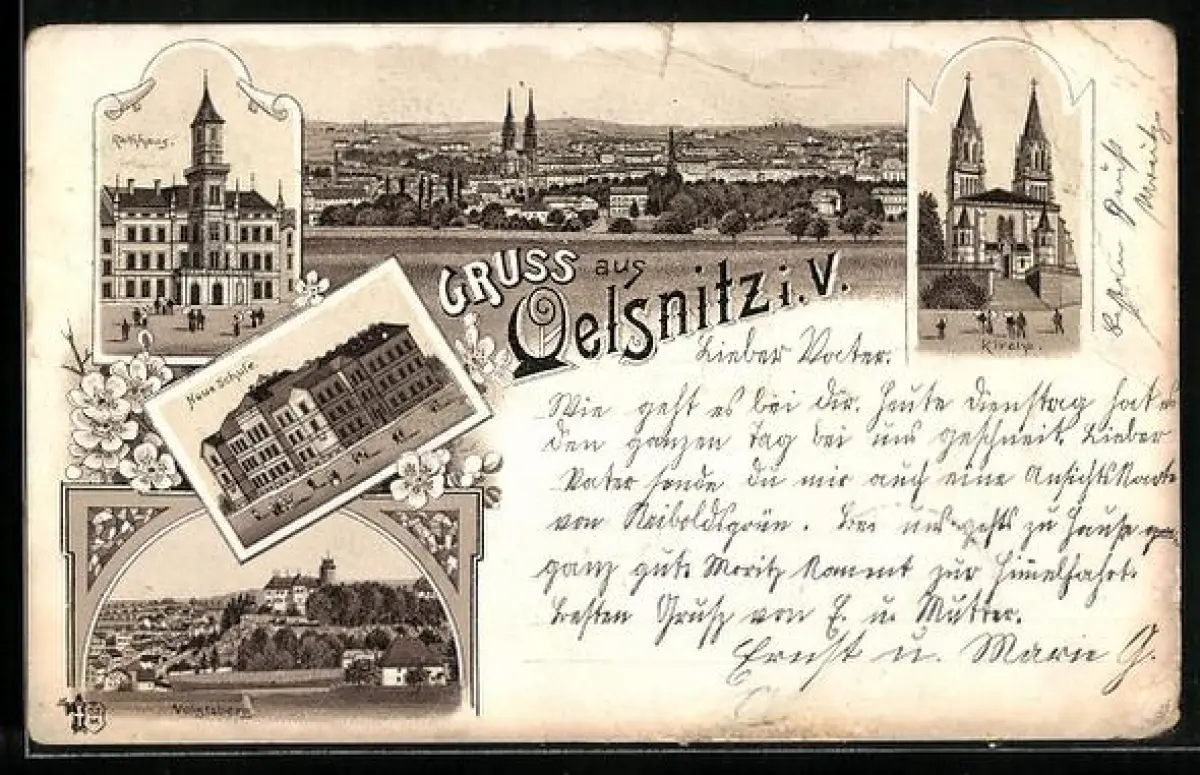 Rathhaus.
Kirche.
GRUSS aus
Oelsnitz i. V.
Neue Schule
Voigtsberg
Lieber Vater.
Wie geht es bei dir. Heute Dienstag hat es
den ganzen Tag bei uns geschneit. Lieber
Vater sende du mir auch eine Ansichtskarte
von Reiboldsgrün. Bei uns gehts zu Hause
ganz gut. Moritz kommt zur Himelfahrt.
Besten Gruß von E. u. Mutter.
Ernst u. Marie G.
Schön Gruß
Moritz